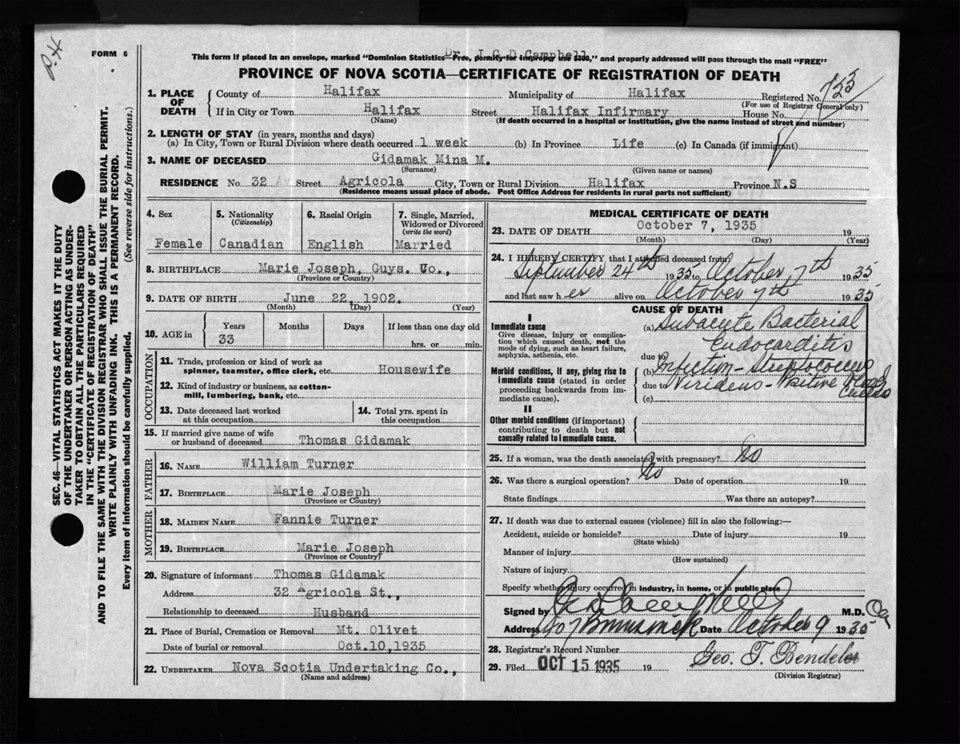 P.H
FORM 6
Dr. J G D Campbell
This form if placed in an envelope, marked "Dominion Statistics—Free, penalty for improper use $300," and properly addressed will pass through the mail "FREE"
PROVINCE OF NOVA SCOTIA—CERTIFICATE OF REGISTRATION OF DEATH
1. PLACE OF DEATH
County of Halifax Municipality of Halifax Registered No. 723
(For use of Registrar General only)
If in City or Town Halifax Street Halifax Infirmary House No.
(Name) (If death occurred in a hospital or institution, give the name instead of street and number)
2. LENGTH OF STAY (in years, months and days)
(a) In City, Town or Rural Division where death occurred 1 week (b) In Province Life (c) In Canada (if immigrant)
3. NAME OF DECEASED Gidamak Mina M.
(Surname) (Given name or names)
RESIDENCE No. 32 Street Agricola City, Town or Rural Division Halifax Province N.S
(Residence means usual place of abode. Post Office Address for residents in rural parts not sufficient)
SEC. 46—VITAL STATISTICS ACT MAKES IT THE DUTY
OF THE UNDERTAKER OR PERSON ACTING AS UNDER-
TAKER TO OBTAIN ALL THE PARTICULARS REQUIRED
IN THE "CERTIFICATE OF REGISTRATION OF DEATH"
AND TO FILE THE SAME WITH THE DIVISION REGISTRAR WHO SHALL ISSUE THE BURIAL PERMIT.
WRITE PLAINLY WITH UNFADING INK. THIS IS A PERMANENT RECORD.
Every item of information should be carefully supplied. (See reverse side for instructions.)
4. Sex Female
5. Nationality (Citizenship) Canadian
6. Racial Origin English
7. Single, Married, Widowed or Divorced (write the word) Married
8. BIRTHPLACE Marie Joseph, Guys. Co.,
(Province or Country)
9. DATE OF BIRTH June 22, 1902.
(Month) (Day) (Year)
10. AGE in Years Months Days If less than one day old
33 hrs. or min.
OCCUPATION
11. Trade, profession or kind of work as
spinner, teamster, office clerk, etc. Housewife
12. Kind of industry or business, as cotton-
mill, lumbering, bank, etc.
13. Date deceased last worked
at this occupation
14. Total yrs. spent in
this occupation
15. If married give name of wife
or husband of deceased Thomas Gidamak
FATHER
16. NAME William Turner
17. BIRTHPLACE Marie Joseph
(Province or Country)
MOTHER
18. MAIDEN NAME Fannie Turner
19. BIRTHPLACE Marie Joseph
(Province or Country)
20. Signature of informant Thomas Gidamak
Address 32 Agricola St.,
Relationship to deceased Husband
21. Place of Burial, Cremation or Removal Mt. Olivet
Date of burial or removal Oct.10,1935
22. UNDERTAKER Nova Scotia Undertaking Co.,
(Name and address)
MEDICAL CERTIFICATE OF DEATH
23. DATE OF DEATH October 7, 1935 19
(Month) (Day) (Year)
24. I HEREBY CERTIFY that I attended deceased from
September 24th 1935 to October 7th 1935
and last saw her alive on October 7th 1935
CAUSE OF DEATH
I
Immediate cause
Give disease, injury or complica-
tion which caused death, not the
mode of dying, such as heart failure,
asphyxia, asthenia, etc.
(a) Subacute Bacterial
Endocarditis
due to
Morbid conditions, if any, giving rise to
immediate cause (stated in order
proceeding backwards from im-
mediate cause).
(b) Infection - Streptococcus
due to Viridens - Positive Blood
(c)
II
Other morbid conditions (if important)
contributing to death but not
causally related to immediate cause.
25. If a woman, was the death associated with pregnancy? No
26. Was there a surgical operation? No Date of operation 19
State findings Was there an autopsy?
27. If death was due to external causes (violence) fill in also the following:—
Accident, suicide or homicide? Date of injury 19
(State which)
Manner of injury
(How sustained)
Nature of injury
Specify whether injury occurred in industry, in home, or in public place
Signed by Campbell M.D.
Address Brunswick Date October 9 1935
28. Registrar's Record Number
29. Filed OCT 15 1935 19 Geo. T. Bendelor
(Division Registrar)